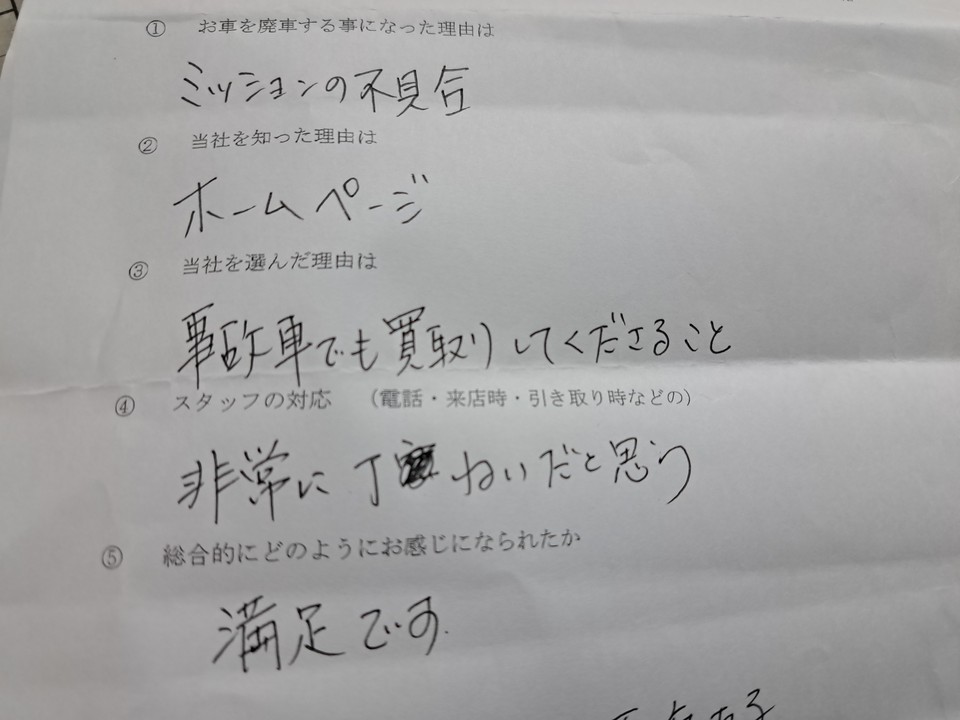 ① お車を廃車する事になった理由は
ミッションの不具合
② 当社を知った理由は
ホームページ
③ 当社を選んだ理由は
事故車でも買取りしてくださること
④ スタッフの対応 （電話・来店時・引き取り時などの）
非常に丁ねいだと思う
⑤ 総合的にどのようにお感じになられたか
満足です.